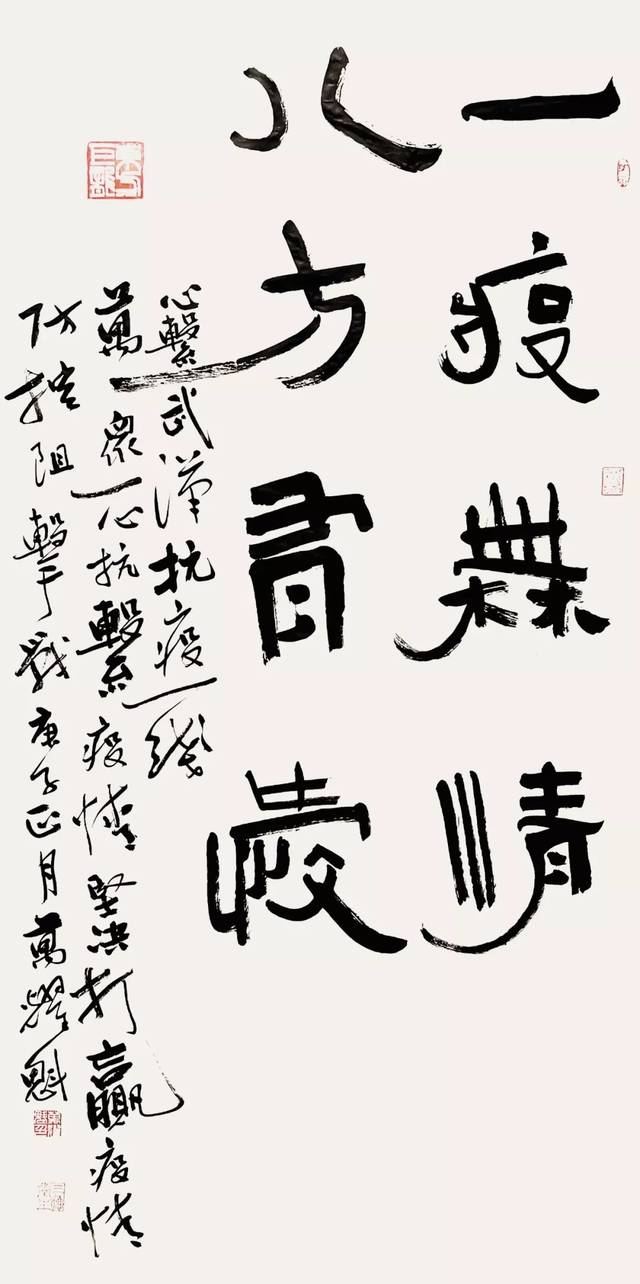 一疫無情
八方有愛
心繫武漢抗疫一綫
萬衆一心抗繫疫情堅决打贏疫情
防控阻擊戰庚子正月萬耀魁